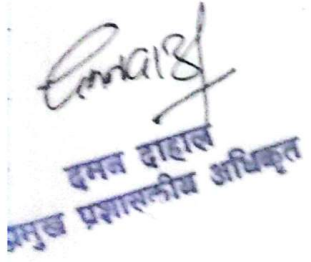 दमन दाहाल
प्रमुख प्रशासकीय अधिकृत